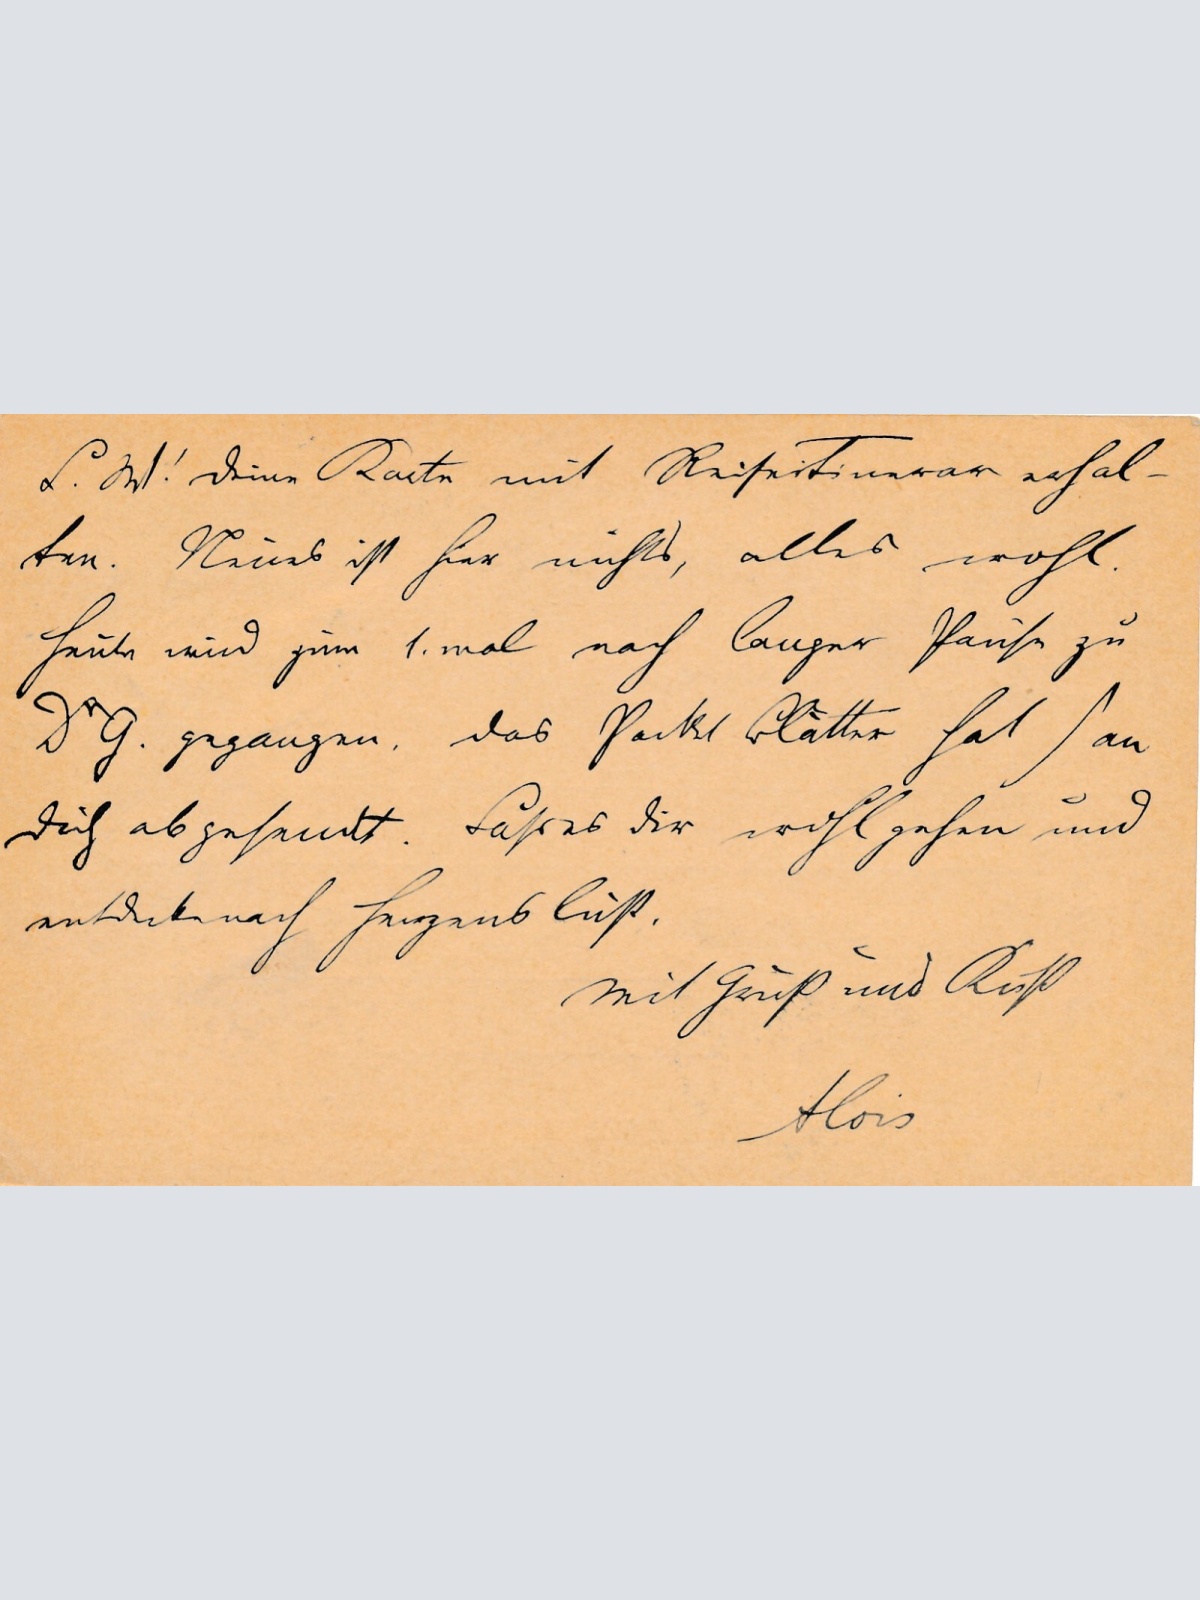 L. W! Deine Karte mit Reiseitinerar erhal-
ten. Neues ist hier nichts, alles wohl.
Heute wird zum 1. mal nach langer Pause zu
Dr G. gegangen. Das Packet Blätter hat / an
Dich abgesendt. Lass es dir wohl gehen und
entdecke nach Herzenslust.
Mit Gruß und Kuß
Alois